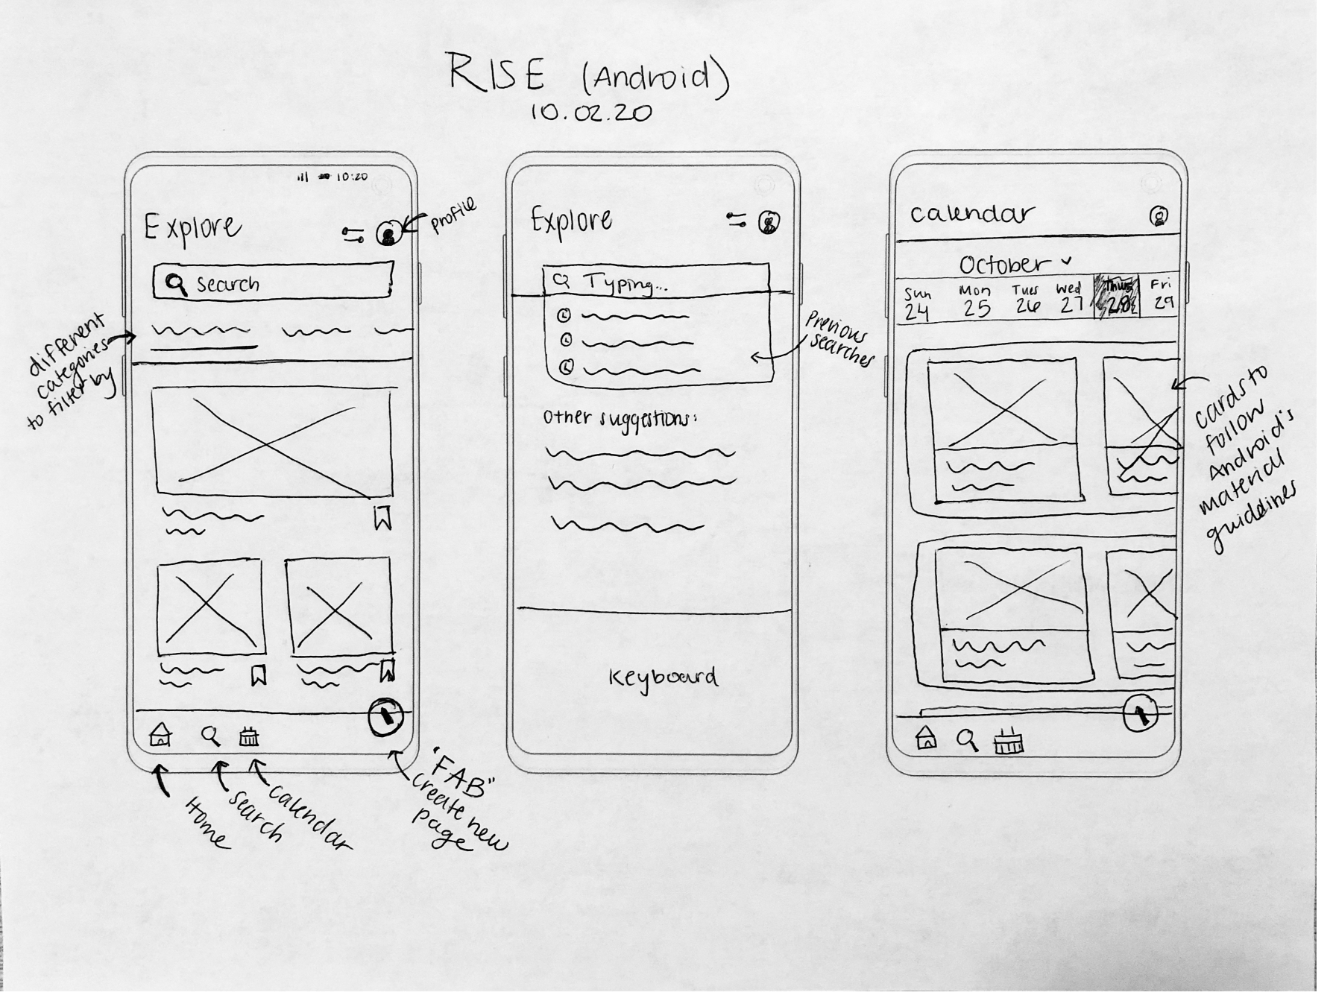 RISE (Android)
10.02.20
10:20
Explore
profile
Search
different
categories
to filter by
Home
search
calendar
"FAB"
create new
page
Explore
Typing...
Previous
searches
other suggestions:
Keyboard
calendar
October
Sun Mon Tues Wed Thurs Fri
24 25 26 27 28 29
cards to
follow
Android's
material
guidelines